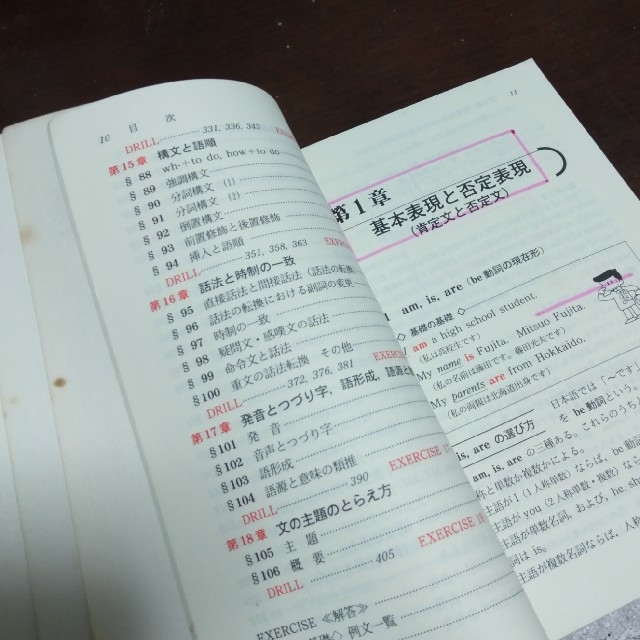 10 目 次
DRILL 331, 336, 343 EXE
第15章 構文と語順
§ 88 wh-+to do, how+to do
§ 89 強調構文
§ 90 分詞構文 (1)
§ 91 分詞構文 (2)
§ 92 倒置構文
§ 93 前置修飾と後置修飾
§ 94 挿入と語順
DRILL 351, 358, 363 EXER
第16章 話法と時制の一致
§ 95 直接話法と間接話法 (話法の転換
§ 96 話法の転換における副詞の変更
§ 97 時制の一致
§ 98 疑問文・感嘆文の話法
§ 99 命令文と話法
§100 重文の話法転換 その他
DRILL 372, 376, 381 EXERC
第17章 発音とつづり字, 語形成, 語源と
§101 発 音
§102 音声とつづり字
§103 語形成
§104 語源と意味の類推
DRILL 390 EXERCISE
第18章 文の主題のとらえ方
§105 主 題
§106 概 要
DRILL 405 EXERCISE
EXERCISE ≪解答≫
例文一覧
11
第1章
基本表現と否定表現
(肯定文と否定文)
am, is, are (be 動詞の現在形)
◇ 基礎の基礎 ◇
am a high school student.
(私は高校生です)
My name is Fujita, Mitsuo Fujita.
(私の名前は藤田です。藤田光夫です)
My parents are from Hokkaido.
(私の両親は北海道出身です)
is, are の選び方
日本語では「～です」
を be 動詞という。
am, is, are の三種ある。これらのうち
と単数か複数かによる。
主語が I (1人称単数) ならば, be
主語が you (2人称単数・複数) な
主語が単数名詞, および, he, sh
is。
主語が複数名詞ならば, 人称